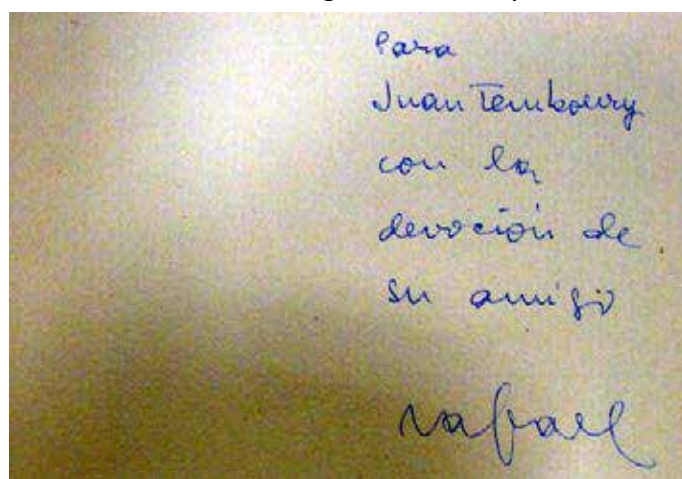 Para
Juan Temboury
con la
devoción de
su amigo
rafael